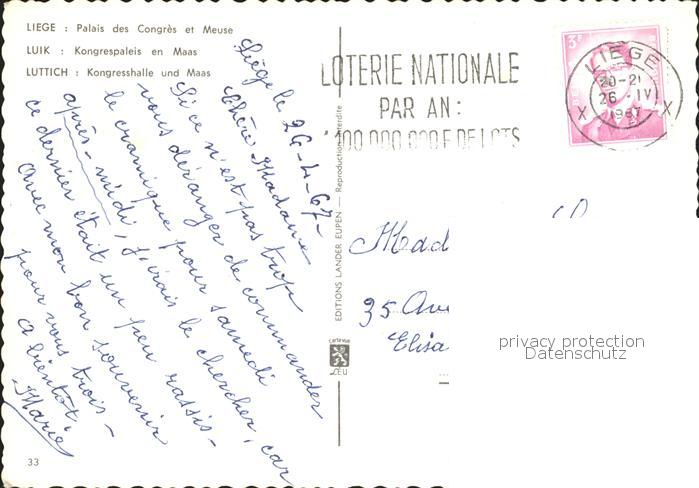 LIEGE : Palais des Congrès et Meuse
LUIK : Kongrespaleis en Maas
LUTTICH : Kongresshalle und Maas
Liége le 26-4-67-
Chère Madame
Si ce n'est pas trop
vous déranger de commander
le cramique pour samedi
après-midi, j'irais le chercher, car
ce dernier était un peu rassis-
avec mon bon souvenir
pour vous trois-
a bientôt,
Marie
33
EDITIONS LANDER EUPEN — Reproduction interdite
LOTERIE NATIONALE
PAR AN :
400 000 000 F DE LOTS
3F
LIEGE
20-21
26 -IV
1967
X X
Mad
35 Ave
Elisa
privacy protection
Datenschutz